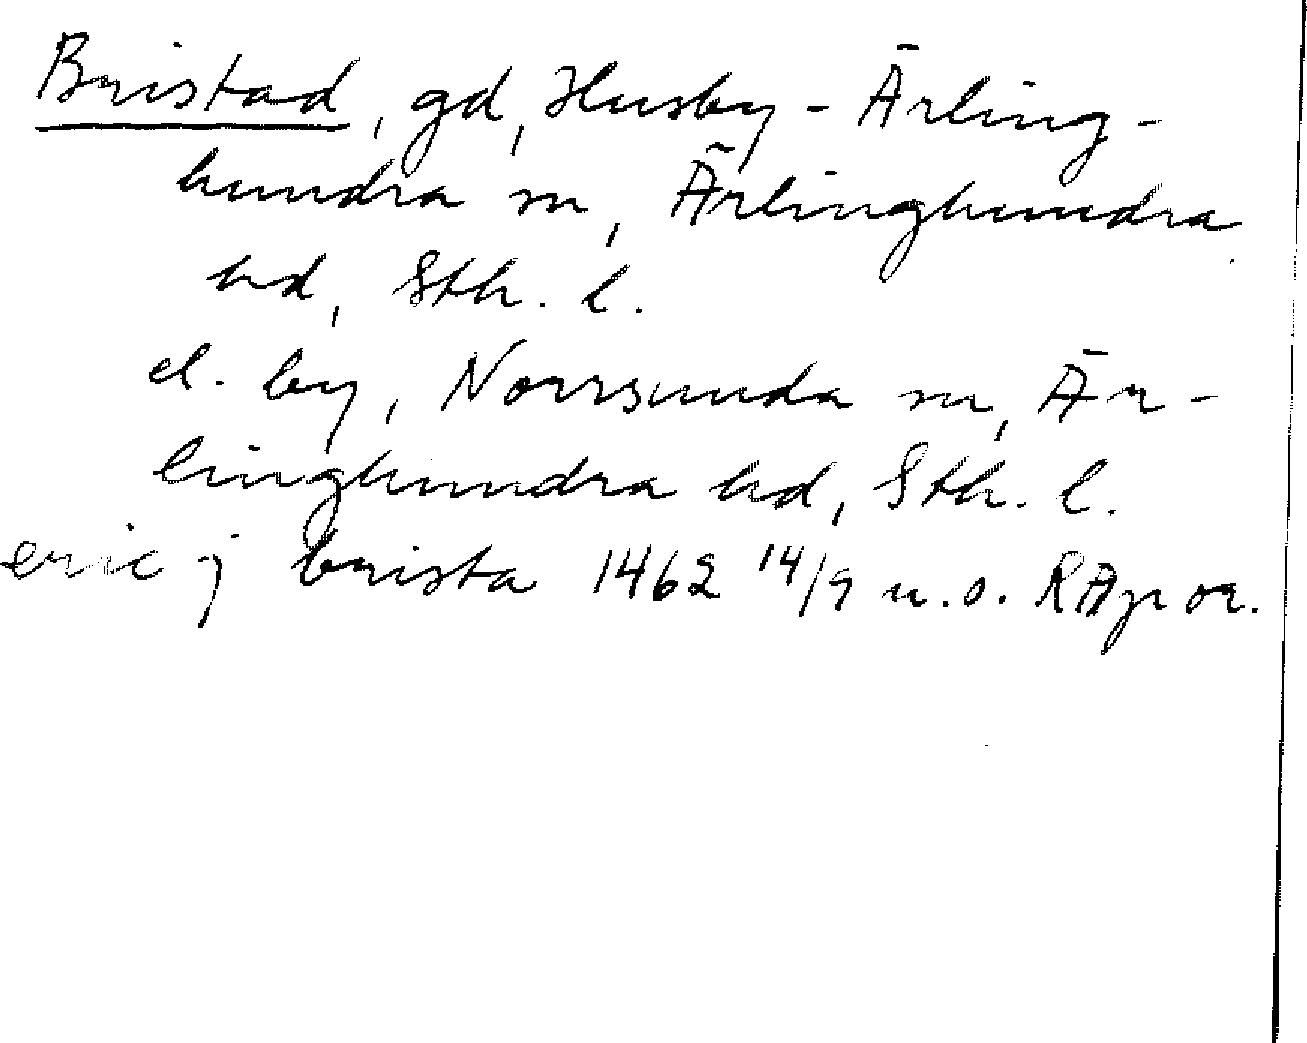 Bristad, gd, Husby-Ärling-
hundra sn, Ärlinghundra
hd, Sth. l.
el. by, Norrsunda sn, Är-
linghundra hd, Sth. l.
eric j brista 1462 14/9 u.o. RAp or.